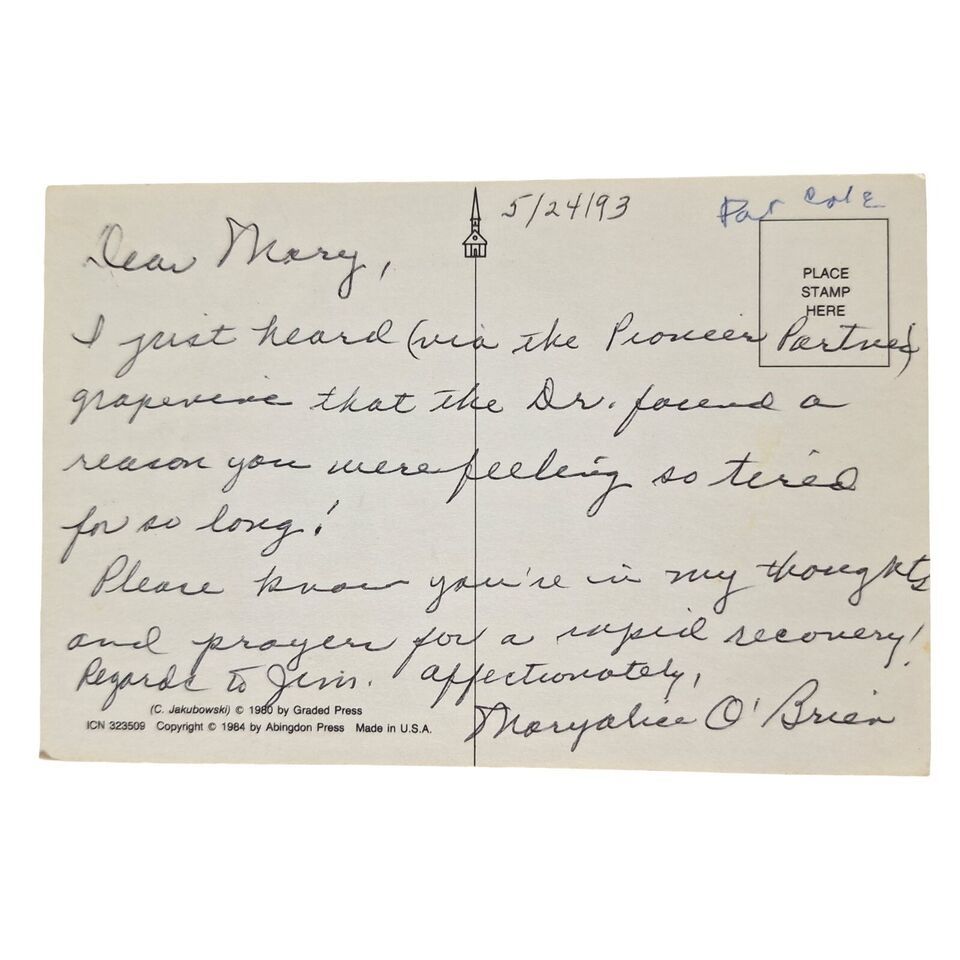 5/24/93
Pat Cole
Dear Mary,
PLACE
STAMP
HERE
I just heard (via the Pioneer Partner)
grapevine that the Dr. found a
reason you were feeling so tired
for so long!
Please know you're in my thoughts
and prayers for a rapid recovery!
Regards to Jim. Affectionately,
Maryalice O'Brien
(C. Jakubowski) © 1980 by Graded Press
ICN 323509 Copyright © 1984 by Abingdon Press Made in U.S.A.